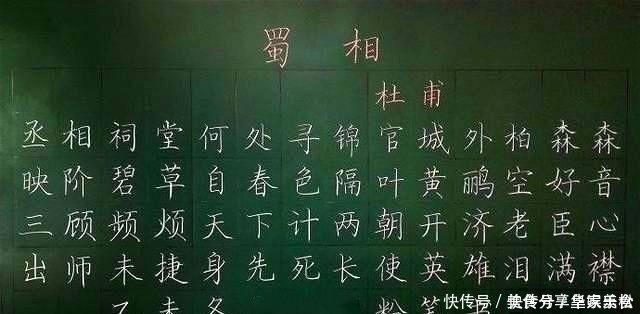 蜀相
杜甫
丞相祠堂何处寻锦官城外柏森森
映阶碧草自春色隔叶黄鹂空好音
三顾频烦天下计两朝开济老臣心
出师未捷身先死长使英雄泪满襟
乙未冬 粉笔书
快传号／